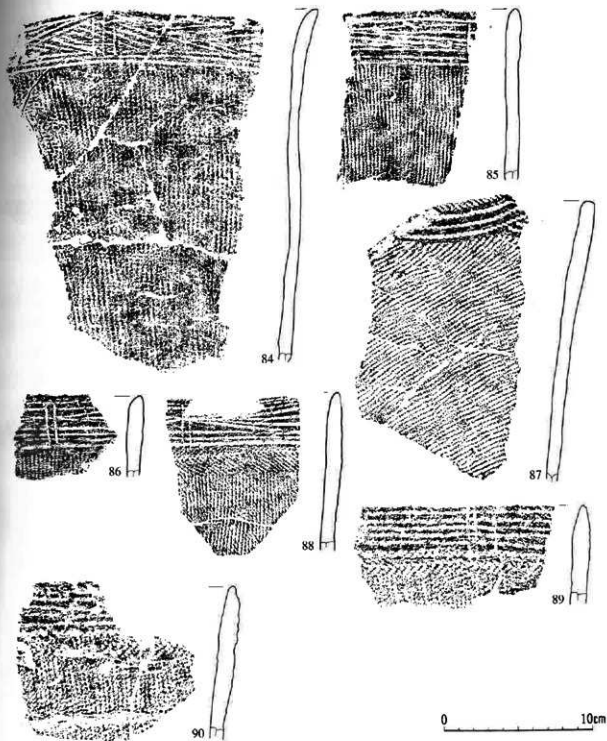 84
85
86
87
88
89
90
0 10cm